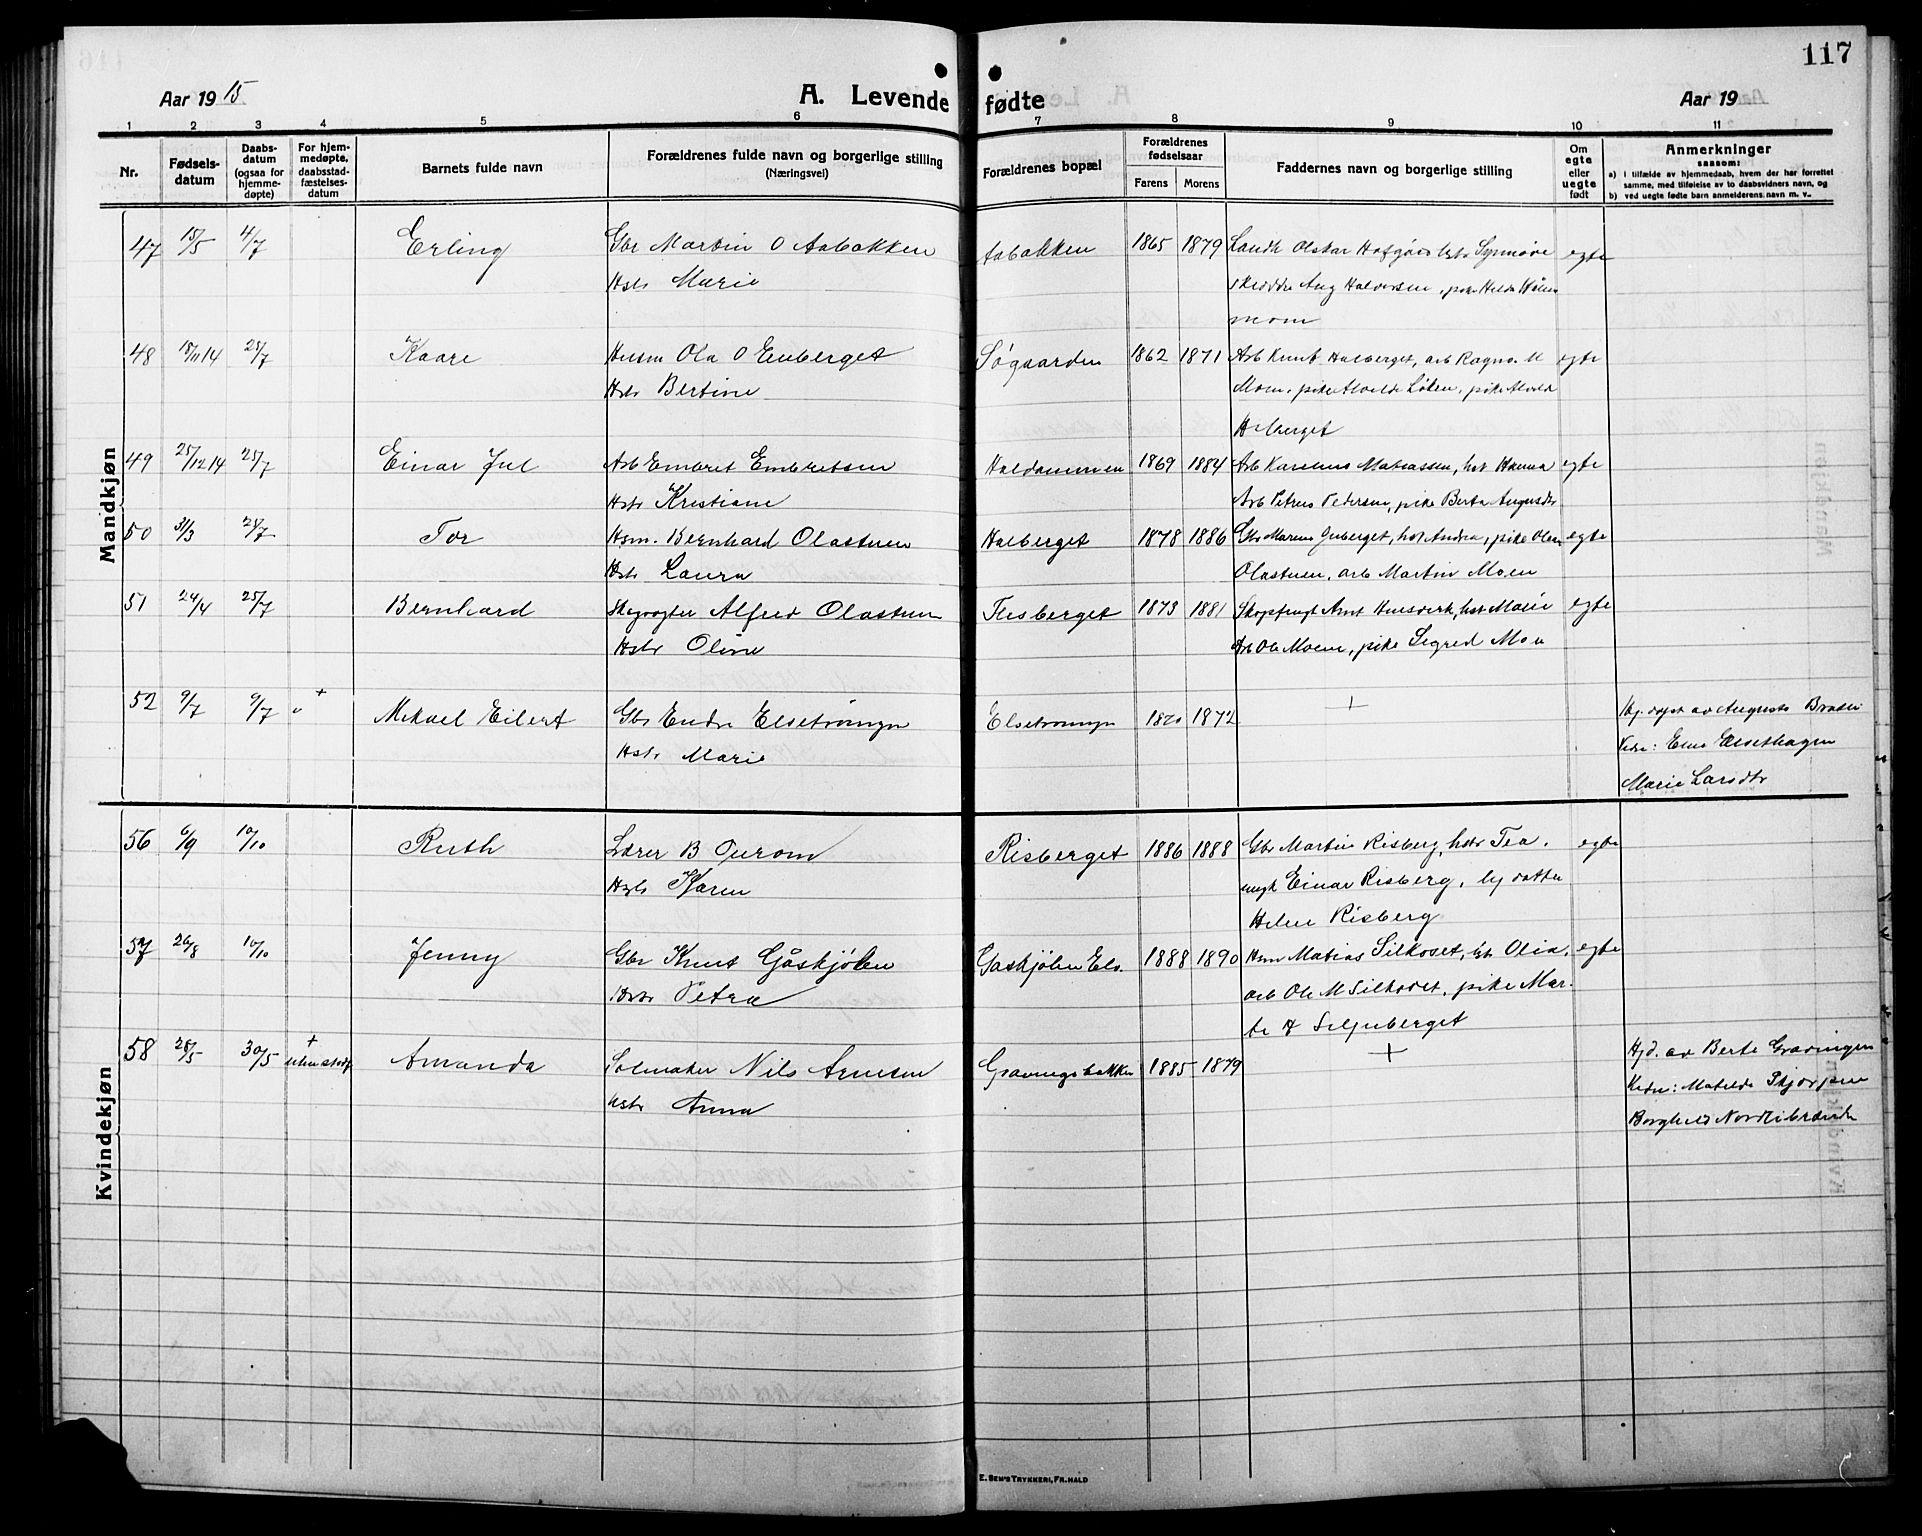 117
Aar 1915
A. Levende fødte
Aar 19
1 2 3 4 5 6 7 8 9 10 11
Nr.
Fødsels-
datum
Daabs-
datum
(ogsaa for
hjemme-
døpte)
For hjem-
medøpte,
daabsstad-
fæstelses-
datum
Barnets fulde navn
Forældrenes fulde navn og borgerlige stilling
(Næringsvei)
Forældrenes bopæl
Forældrenes
fødselsaar
Farens Morens
Faddernes navn og borgerlige stilling
Om
egte
eller
uegte
født
Anmerkninger
saasom:
a) i tilfælde av hjemmedaab, hvem der har forrettet
samme, med tilføielse av to daabsvidners navn, og
b) ved uegte fødte barn anmelderens navn m. v.
Mandkjøn
47 15/5 4/7 Erling Gbr Martin O Aabakken Aabakken 1865 1879 Landh Olskar Hafgård hstr Synnøve egte
Hstr Marie Aug Halvorsen, pike Helda
moen
48 15/11 14 25/7 Kaare Husm Ola O Enberget Søgaarden 1862 1871 Arb Knut Halberget, arb Ragnv. M egte
Hstr Bertine Moen, pike Alvilde Løken, pike Alvilde
Halberget
49 25/12 14 25/7 Einar Jul Arb Embret Embretsen Haldammen 1869 1884 Arb Karelius Matiassen, hst Hanna egte
Hstr Kristiane Arb Petrus Pedersen, pike Berta Augustdtr
50 31/3 25/7 Tor Hsm. Bernhard Olastuen Halberget 1878 1886 Gbr Marius Enberget, hst Andrea, pike Olene egte
Hstr Laura Olastuen, arb Martin Moen
51 24/4 25/7 Bernhard Skogvogter Alfred Olastuen Flisberget 1873 1881 Arnt hst Marie egte
Hstr Oline Arb Ole Moen, pike Sigred Moen
52 9/7 9/7 + Mikael Eilert Gbr Endre Elsetrønningen 1872 + Hj. døpt av Augusta Braten
Hstr Marie Vidn: Elsethagen
Marie Larsdtr
Kvindekjøn
56 6/9 10/10 Ruth Lærer B Purom Risberget 1886 1888 Gbr Martin Risberg, hstr Tea. egte
Hstr Karen ungk Einar Risberg, lj datter
Helen Risberg
57 26/8 10/10 Jenny Gbr Knut Gåskjølen Gaskjølen Elv. 1888 1890 Hsm Matias Silkoset, hst Olia, egte
Hstr Petra arb Ole M Silkoset, pike Mar-
te H Siljuberget
58 28/5 30/5 + Amanda Salmaker Nils Arnesen Gravingsbakken 1885 1879 + Hjd. av Berte Gravingen
hstr Anna Vidn: Matilde Skjorpen
Borghild Nordlibrænde
E. SEM'S TRYKKERI, FR.HALD